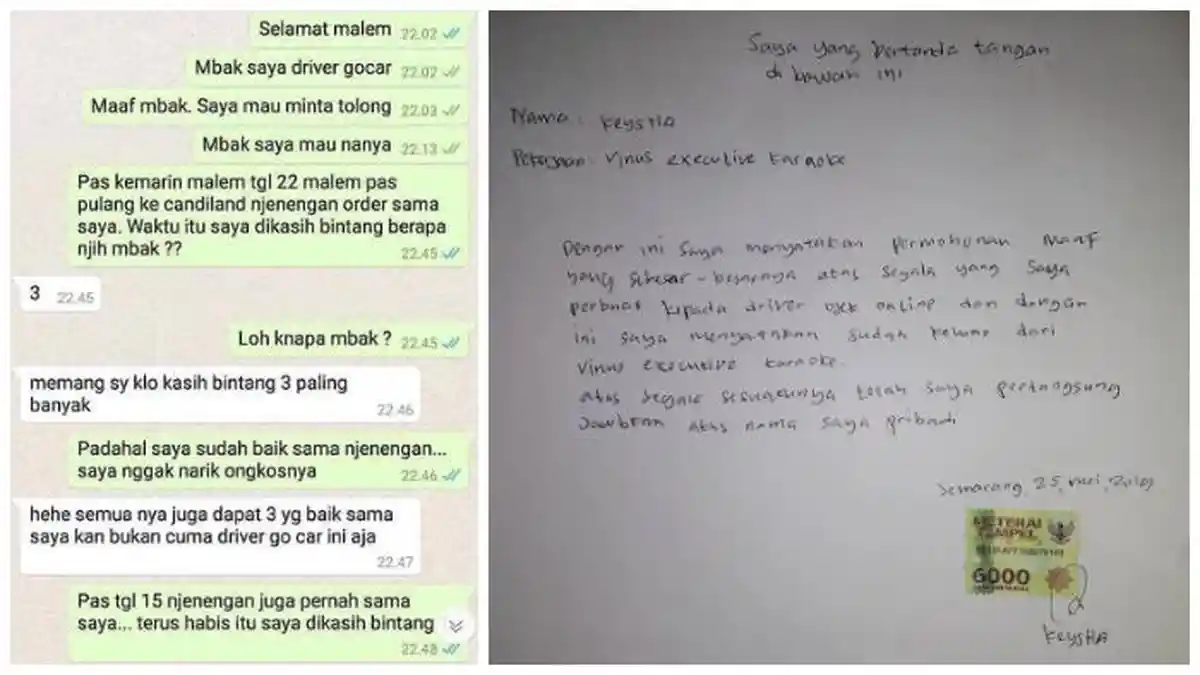 Selamat malem 22.02
Mbak saya driver gocar 22.02
Maaf mbak. Saya mau minta tolong 22.03
Mbak saya mau nanya 22.13
Pas kemarin malem tgl 22 malem pas
pulang ke candiland njenengan order sama
saya. Waktu itu saya dikasih bintang berapa
njih mbak ??
22.45
3 22.45
Loh knapa mbak ? 22.45
memang sy klo kasih bintang 3 paling
banyak
22.46
Padahal saya sudah baik sama njenengan...
saya nggak narik ongkosnya 22.46
hehe semua nya juga dapat 3 yg baik sama
saya kan bukan cuma driver go car ini aja
22.47
Pas tgl 15 njenengan juga pernah sama
saya... terus habis itu saya dikasih bintang
22.48
Saya yang bertanda tangan
di bawah ini
Nama : Keysha
Pekerjaan : Vinus executive karaoke
Dengan ini saya menyatakan permohonan maaf
yang sebesar-besarnya atas segala yang saya
perbuat kepada driver ojek online dan dengan
ini saya menyatakan sudah keluar dari
Vinus executive karaoke.
atas segala sesuatunya telah saya pertanggung
Jawabkan atas nama saya pribadi
Semarang, 25
METERAI
TEMPEL
6000
Keysha